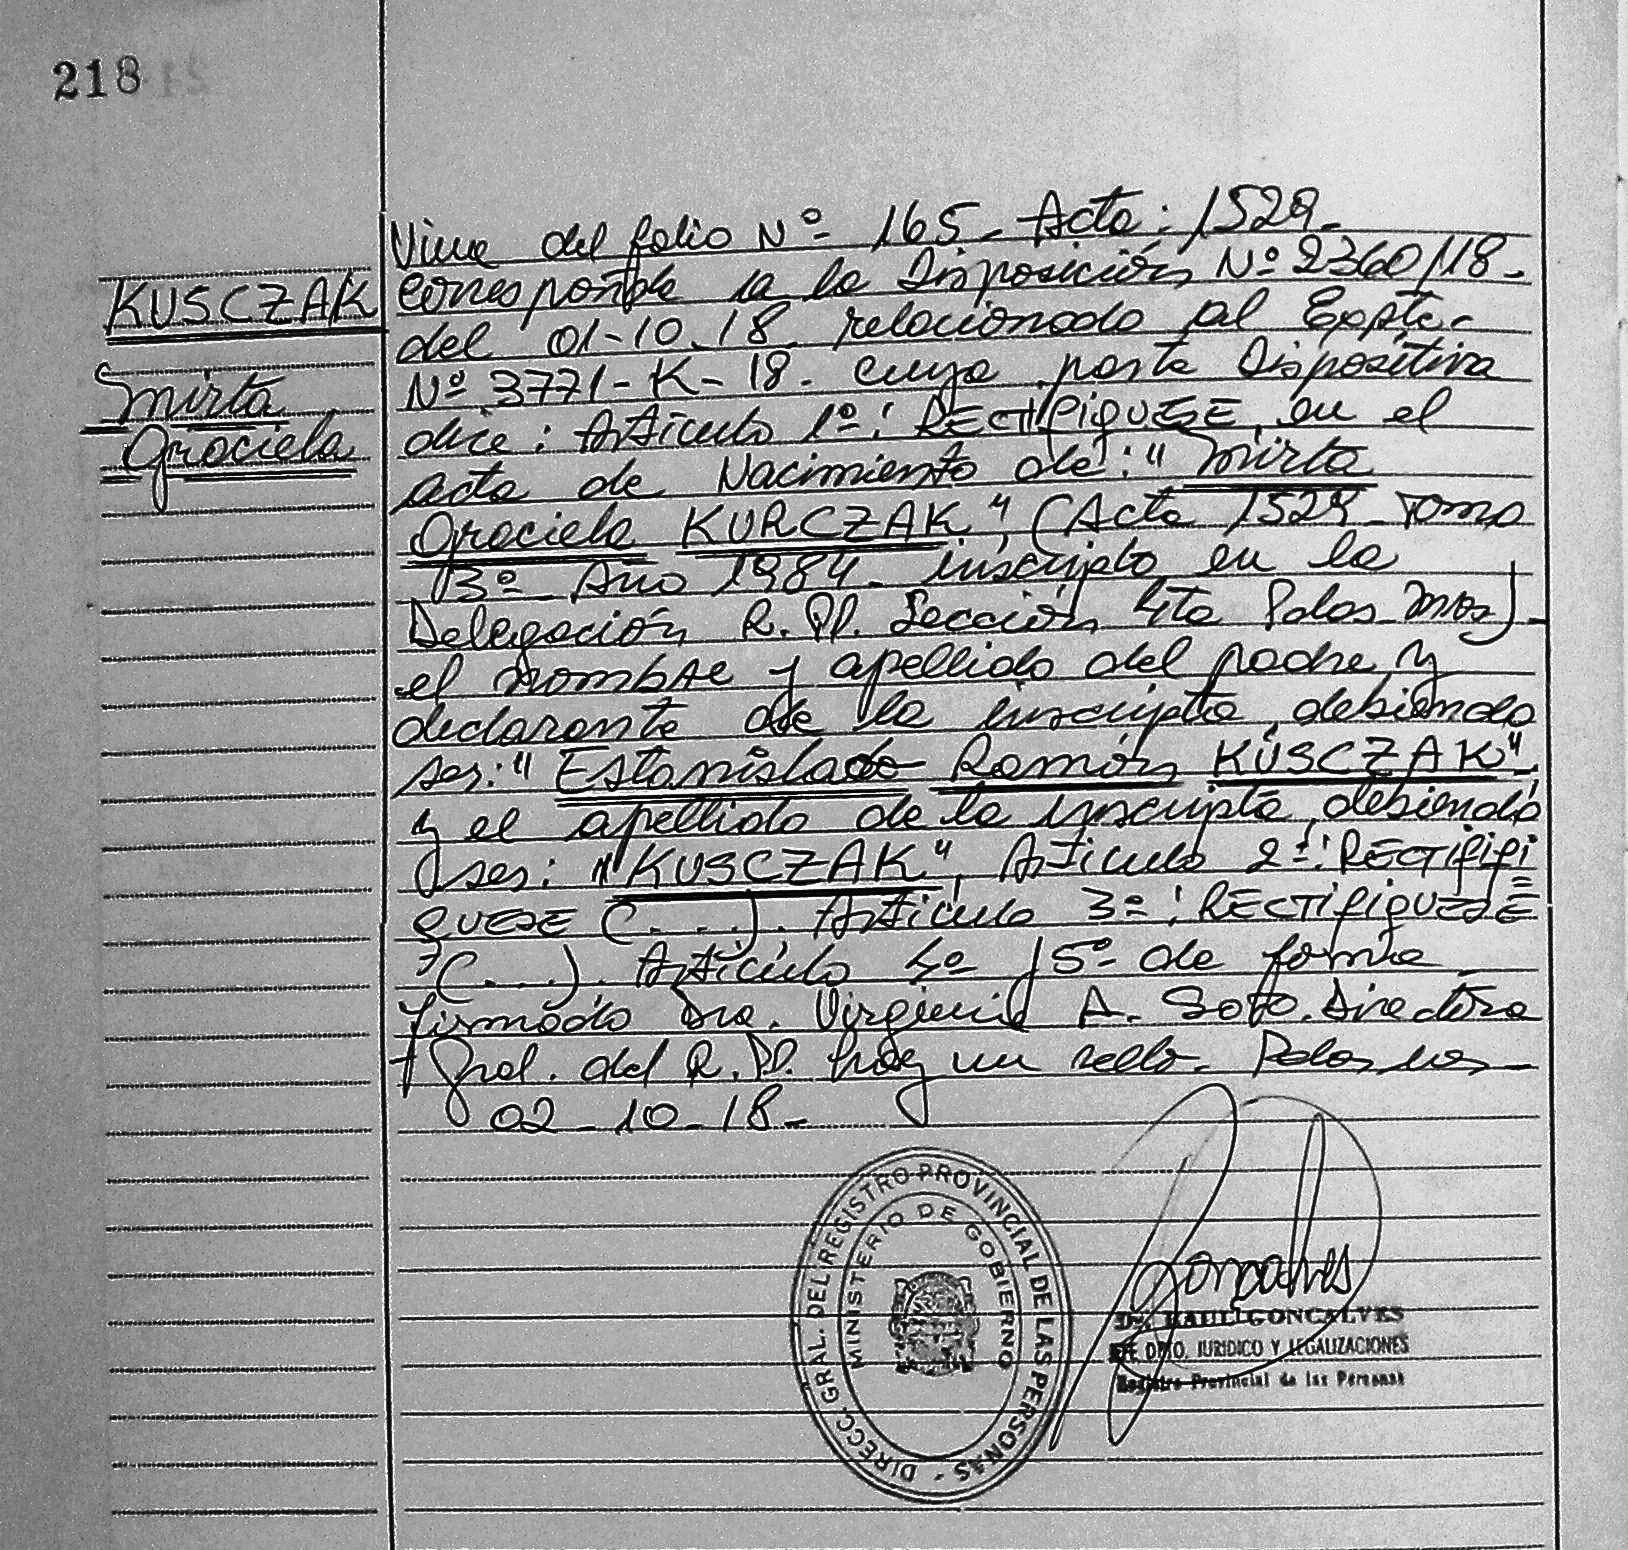 218
KUSCZAK
Mirta
Graciela
Viene del folio Nº 165 - Acta: 1529 -
corresponde a la Disposición Nº 2360/18 -
del 01-10-18 relacionado al Expte.
Nº 3771-K-18. cuya parte Dispositiva
dice: Artículo 1º: RECTIFIQUESE, en el
acta de Nacimiento de: "Mirta
Graciela KURCZAK", (Acta 1529 - Tomo
3º - Año 1984 - inscripto en la
Delegación R.PP. Sección 4ta Posadas Mnes) -
el nombre y apellido del padre y
declarante de la inscripta, debiendo
ser: "Estanislado Ramón KUSCZAK" -
y el apellido de la inscripta, debiendo
ser: "KUSCZAK", Artículo 2º: RECTIFIFI
QUESE (. . .). Artículo 3º: RECTIFIQUESE
(. . .). Artículo 4º / 5º de forma -
firmado Dra. Virginia A. Soto. Directora
Gral. del R.PP. hay un sello. Posadas
02-10-18 -
DIRECC. GRAL. DEL REGISTRO PROVINCIAL DE LAS PERSONAS -
MINISTERIO DE GOBIERNO
Goncalves
Dr. RAUL GONCALVES
JEFE DPTO. JURIDICO Y LEGALIZACIONES
Registro Provincial de las Personas